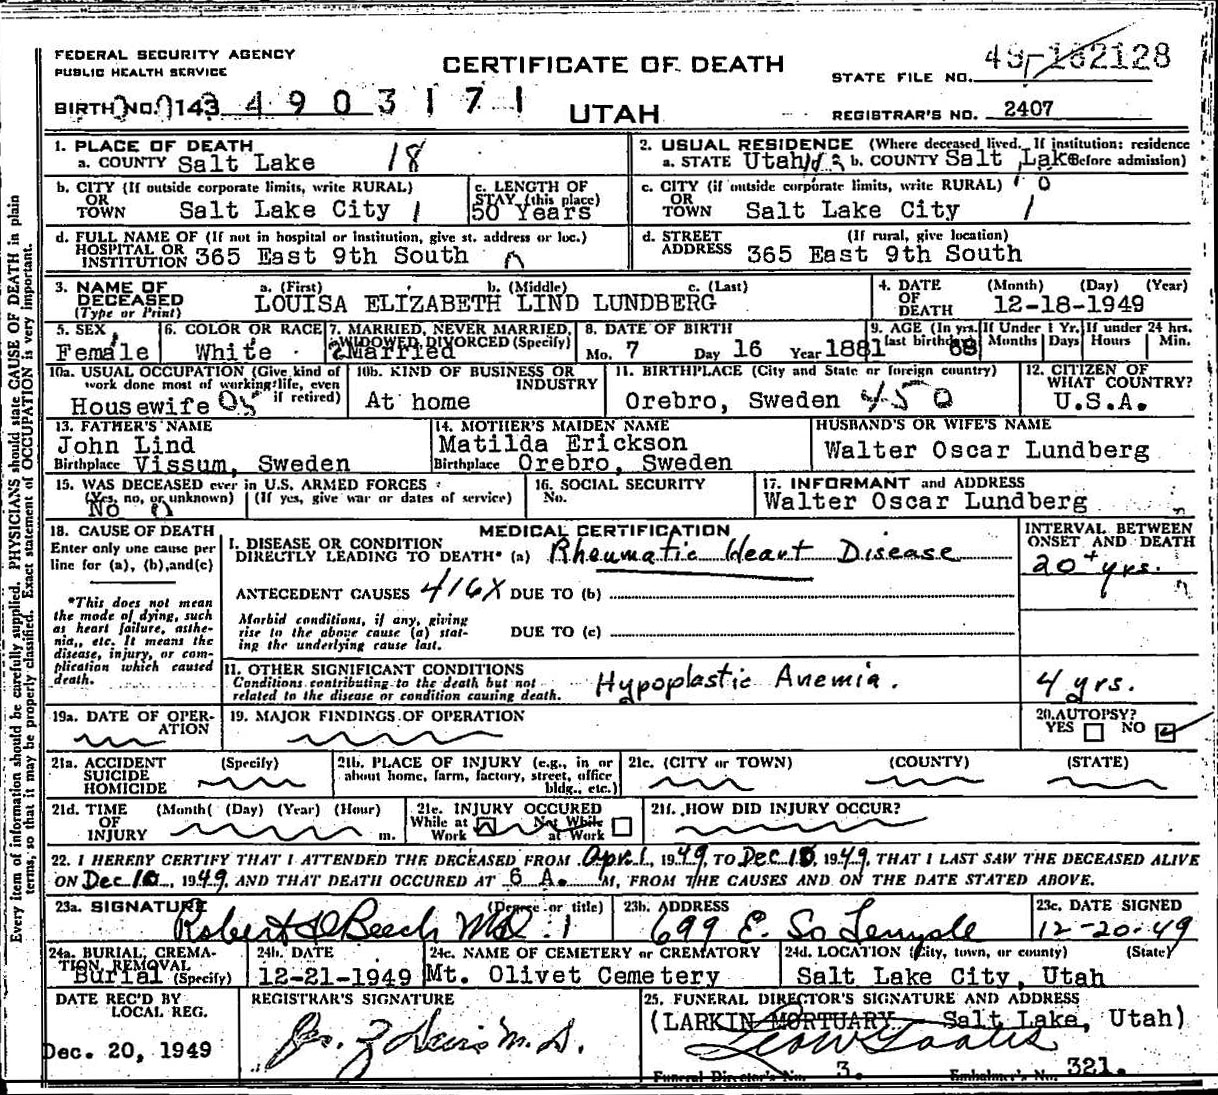 FEDERAL SECURITY AGENCY
PUBLIC HEALTH SERVICE
CERTIFICATE OF DEATH
UTAH
STATE FILE NO. 49-182128
BIRTH NO. 143 4 9 0 3 1 7 1
REGISTRAR'S NO. 2407
1. PLACE OF DEATH
a. COUNTY Salt Lake 18
2. USUAL RESIDENCE (Where deceased lived. If institution: residence
a. STATE Utah b. COUNTY Salt Lake before admission)
b. CITY (If outside corporate limits, write RURAL)
OR
TOWN Salt Lake City 1
c. LENGTH OF
STAY (this place)
50 Years
c. CITY (if outside corporate limits, write RURAL) 0
OR
TOWN Salt Lake City 1
d. FULL NAME OF (If not in hospital or institution, give st. address or loc.)
HOSPITAL OR
INSTITUTION 365 East 9th South
d. STREET (If rural, give location)
ADDRESS 365 East 9th South
3. NAME OF a. (First) b. (Middle) c. (Last)
DECEASED LOUISA ELIZABETH LIND LUNDBERG
(Type or Print)
4. DATE (Month) (Day) (Year)
OF
DEATH 12-18-1949
5. SEX
Female
6. COLOR OR RACE
White
7. MARRIED, NEVER MARRIED,
WIDOWED, DIVORCED (Specify)
2 Married
8. DATE OF BIRTH
Mo. 7 Day 16 Year 1881
9. AGE (In yrs. last birthday) 68
If Under 1 Yr.
Months Days
If under 24 hrs.
Hours Min.
10a. USUAL OCCUPATION (Give kind of
work done most of working life, even
if retired)
Housewife 05
10b. KIND OF BUSINESS OR
INDUSTRY
At home
11. BIRTHPLACE (City and State or foreign country)
Orebro, Sweden 450
12. CITIZEN OF
WHAT COUNTRY?
U.S.A.
13. FATHER'S NAME
John Lind
Birthplace Vissum, Sweden
14. MOTHER'S MAIDEN NAME
Matilda Erickson
Birthplace Orebro, Sweden
HUSBAND'S OR WIFE'S NAME
Walter Oscar Lundberg
15. WAS DECEASED ever in U.S. ARMED FORCES
(Yes, no, or unknown) (If yes, give war or dates of service)
No 0
16. SOCIAL SECURITY
No.
17. INFORMANT and ADDRESS
Walter Oscar Lundberg
18. CAUSE OF DEATH
Enter only one cause per
line for (a), (b), and (c)
*This does not mean
the mode of dying, such
as heart failure, asthe-
nia, etc. It means the
disease, injury, or com-
plication which caused
death.
MEDICAL CERTIFICATION
I. DISEASE OR CONDITION
DIRECTLY LEADING TO DEATH* (a) Rheumatic Heart Disease
INTERVAL BETWEEN
ONSET AND DEATH
20+ yrs.
ANTECEDENT CAUSES 416X DUE TO (b)
Morbid conditions, if any, giving
rise to the above cause (a) stat-
ing the underlying cause last.
DUE TO (c)
II. OTHER SIGNIFICANT CONDITIONS
Conditions contributing to the death but not
related to the disease or condition causing death.
Hypoplastic Anemia.
4 yrs.
19a. DATE OF OPER-
ATION
19. MAJOR FINDINGS OF OPERATION
20. AUTOPSY?
YES NO
21a. ACCIDENT (Specify)
SUICIDE
HOMICIDE
21b. PLACE OF INJURY (e.g., in or
about home, farm, factory, street, office
bldg., etc.)
21c. (CITY or TOWN) (COUNTY) (STATE)
21d. TIME (Month) (Day) (Year) (Hour)
OF
INJURY m.
21e. INJURY OCCURED
While at Work Not While at Work
21f. HOW DID INJURY OCCUR?
22. I HEREBY CERTIFY THAT I ATTENDED THE DECEASED FROM Apr. 1, 1949, TO Dec 18, 1949, THAT I LAST SAW THE DECEASED ALIVE
ON Dec 18, 1949, AND THAT DEATH OCCURED AT 6 A. M, FROM THE CAUSES AND ON THE DATE STATED ABOVE.
23a. SIGNATURE (Degree or title)
Robert Beech MD. 1
23b. ADDRESS
699 E. So Temple
23c. DATE SIGNED
12-20-49
24a. BURIAL, CREMA-
TION, REMOVAL
Burial (Specify)
24b. DATE
12-21-1949
24c. NAME OF CEMETERY or CREMATORY
Mt. Olivet Cemetery
24d. LOCATION (City, town, or county) (State)
Salt Lake City, Utah
DATE REC'D BY
LOCAL REG.
Dec. 20, 1949
REGISTRAR'S SIGNATURE
M.D.
25. FUNERAL DIRECTOR'S SIGNATURE AND ADDRESS
(LARKIN MORTUARY Salt Lake, Utah)
Funeral Director's No. 3. Embalmer's No. 321.
Every item of information should be carefully supplied. PHYSICIANS should state CAUSE OF DEATH in plain
terms, so that it may be properly classified. Exact statement of OCCUPATION is very important.